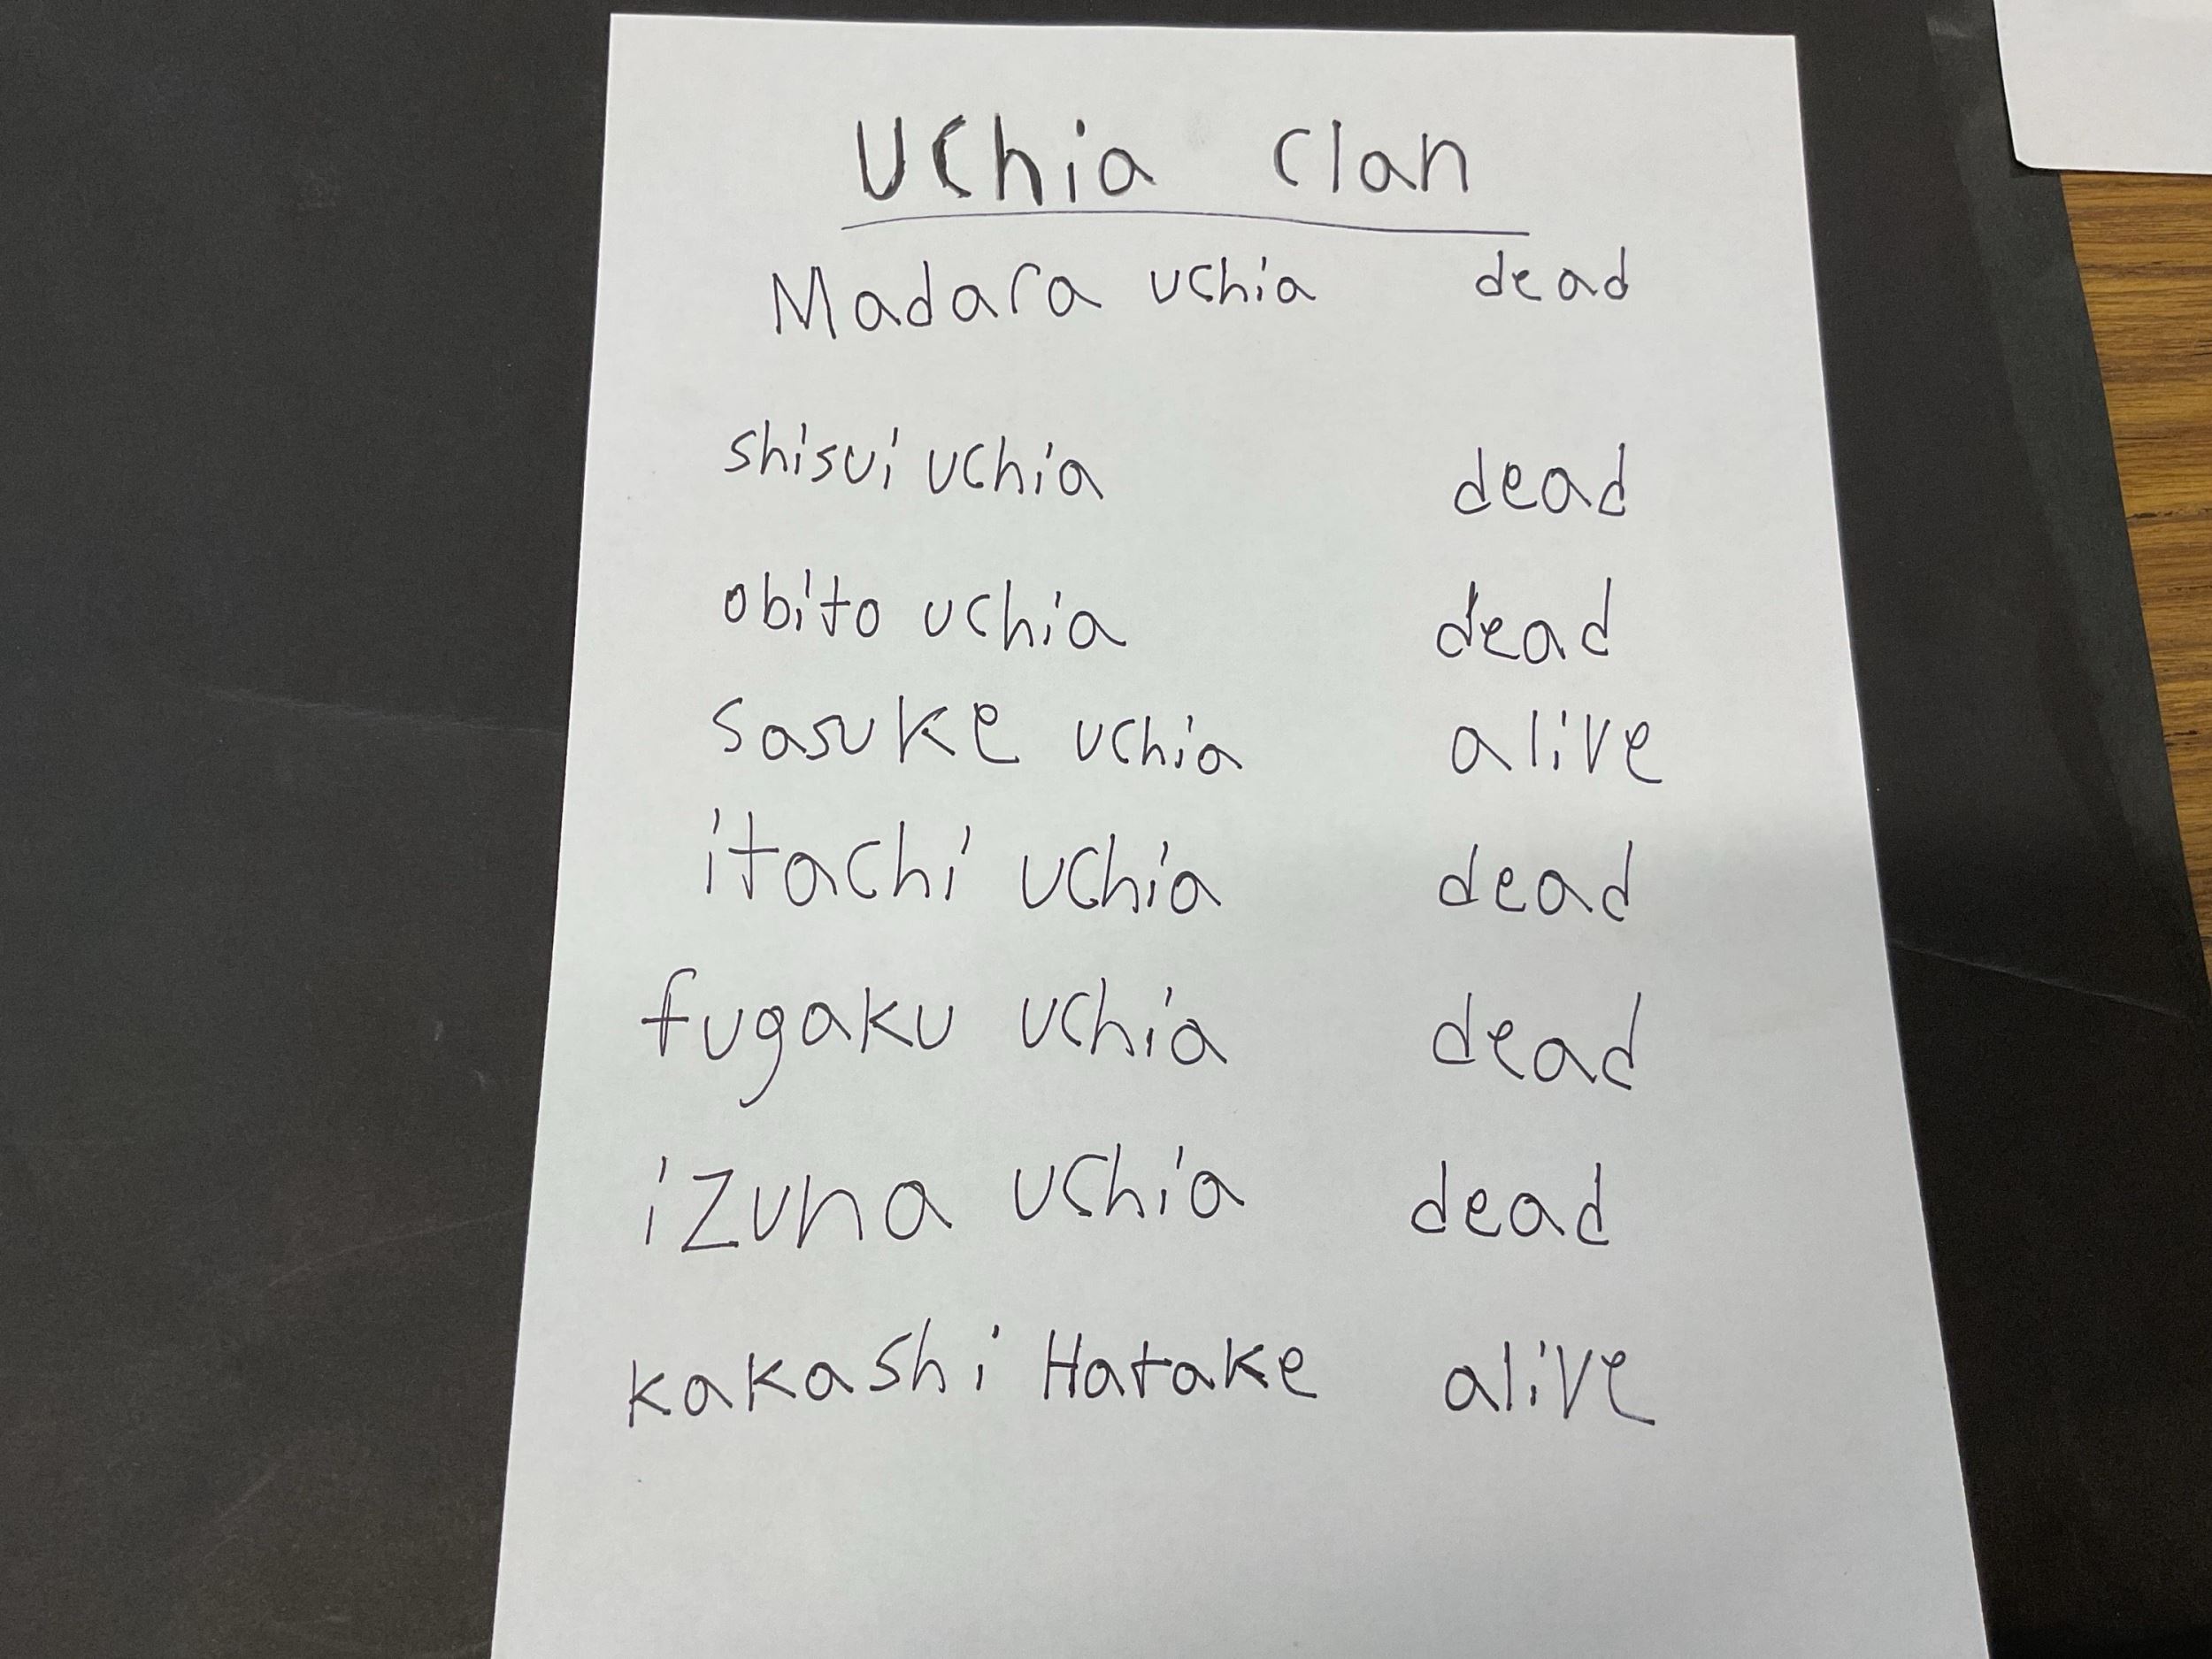 Uchia Clan
Madara uchia dead
shisui uchia dead
obito uchia dead
Sasuke uchia alive
itachi uchia dead
fugaku uchia dead
izuna uchia dead
kakashi Hatake alive